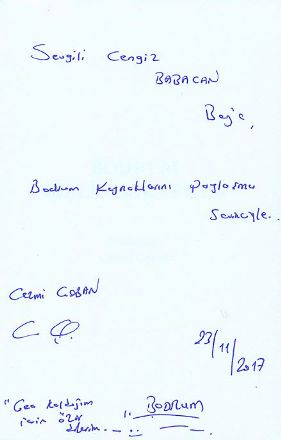 Sevgili Cengiz
BABACAN
Bey'e,
Bodrum Kaynaklarını Paylaşma
Sevinciyle..
Cezmi ÇOBAN
C Ç.
23/11/2017
"Geç kaldığım
için özür
dilerim. "
BODRUM